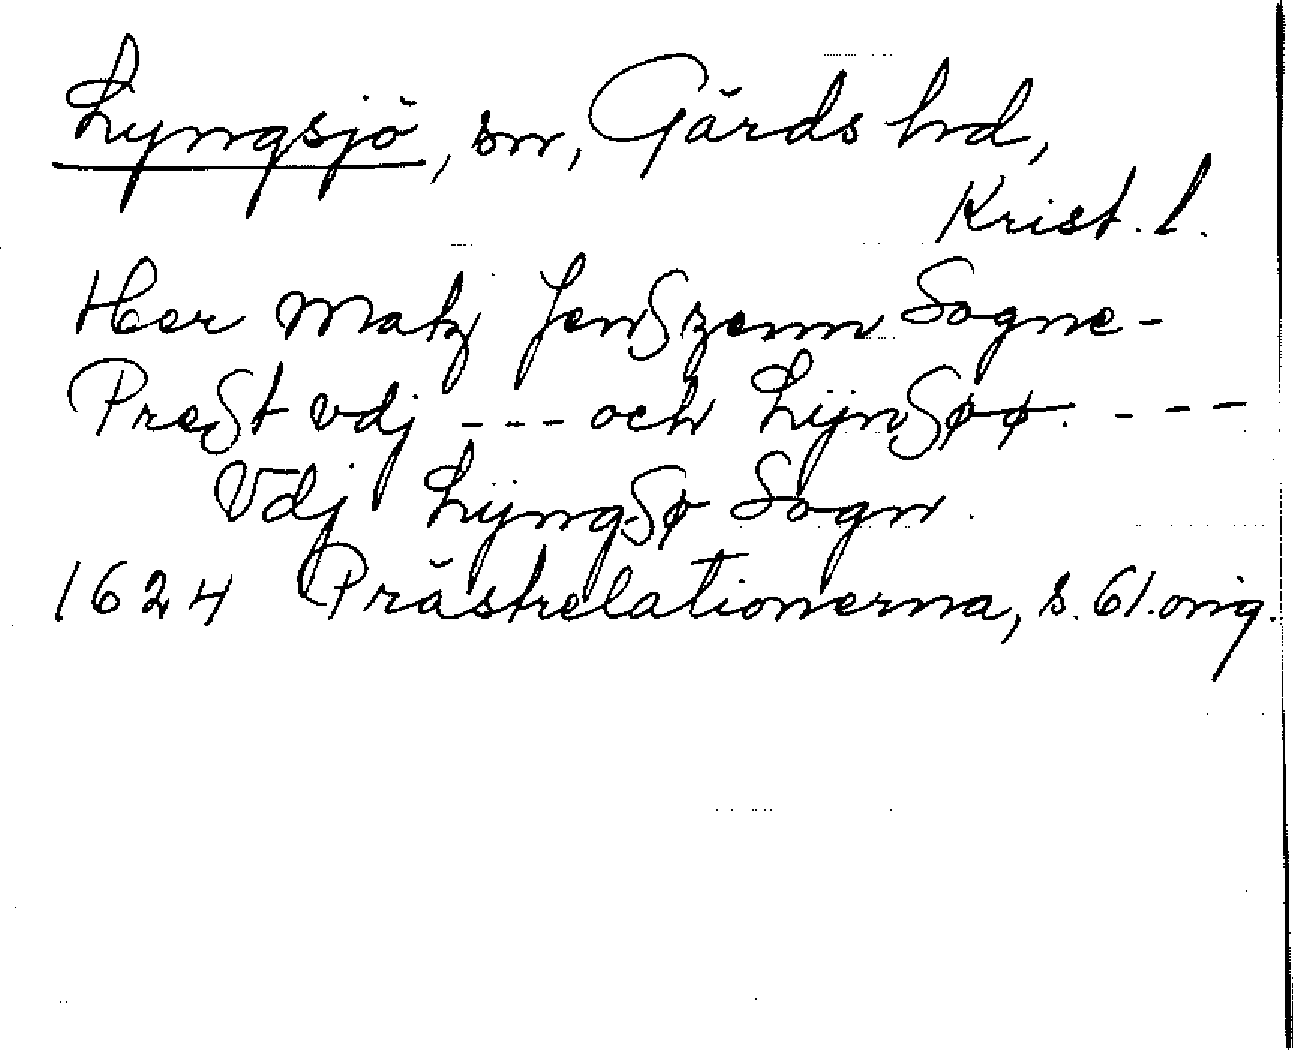 Lyngsjö, sn, Gärds hd,
Krist. l.
Her Matz JenSzenn Sogne-
PreSt vdj --- och LÿnSøø. ---
Vdj LÿngSø Sogn.
1624 Prästrelationerna, s. 61. orig.